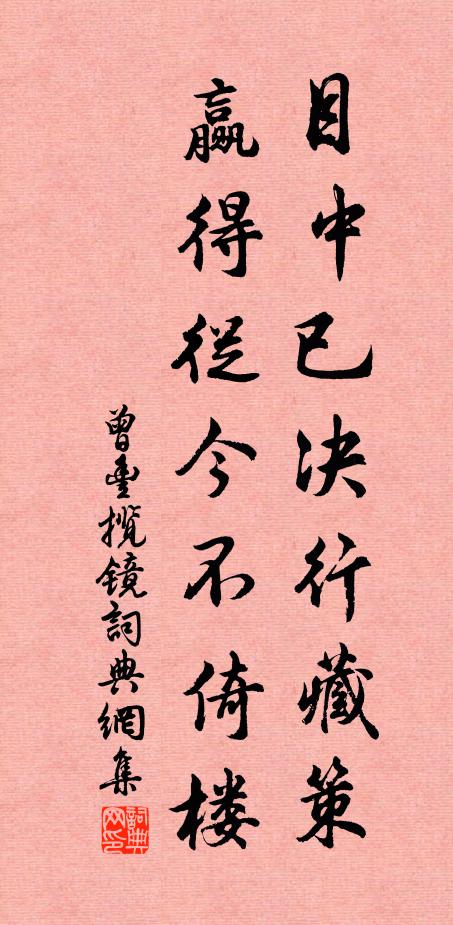 目中已决行藏策
赢得从今不倚楼
曾丰揽镜词典网集
词典网印